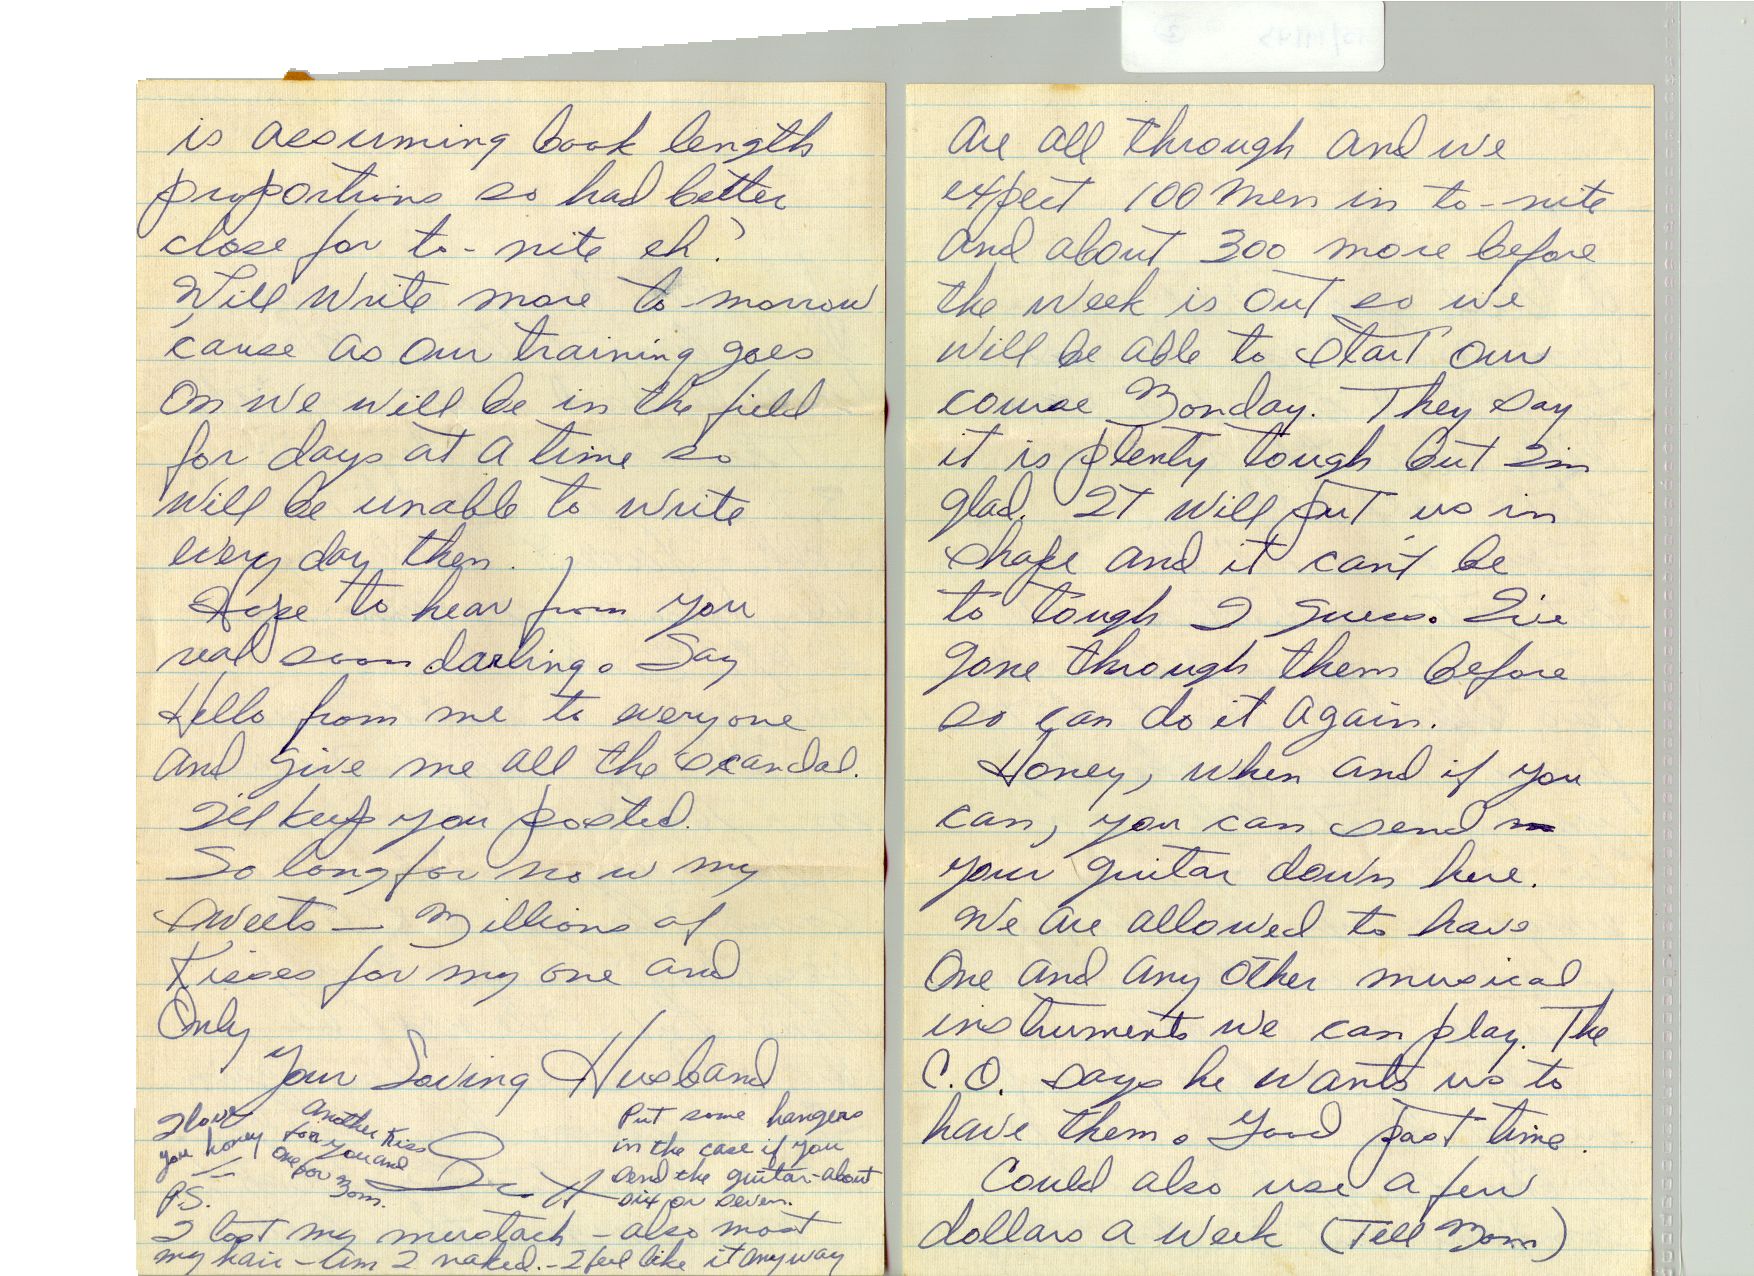 is assuming book length
proportions so had better
close for to-nite eh?
Will write more to-morrow
'cause as our training goes
on we will be in the field
for days at a time so
will be unable to write
every day then.
Hope to hear from you
real soon darling. Say
Hello from me to everyone
and give me all the scandal.
I'll keep you posted.
So long for now my
sweets — Millions of
Kisses for my one and
Only
Your Loving Husband
I love
you honey
Another Kiss
for you and
one for
Mom.
Put some hangers
in the case if you
send the guitar - about
six or seven.
P.S.
I lost my mustach - also most
my hair - am I naked. - I feel like it anyway
are all through and we
expect 100 men in to-nite
and about 300 more before
the week is out so we
will be able to start our
course Monday. They say
it is plenty tough but I'm
glad. It will put us in
shape and it can't be
to tough I guess. I've
gone through them before
so can do it again.
Honey, when and if you
can, you can send
your guitar down here.
We are allowed to have
one and any other musical
instruments we can play. The
C.O. says he wants us to
have them. Good past time.
Could also use a few
dollars a week (Tell Mom)